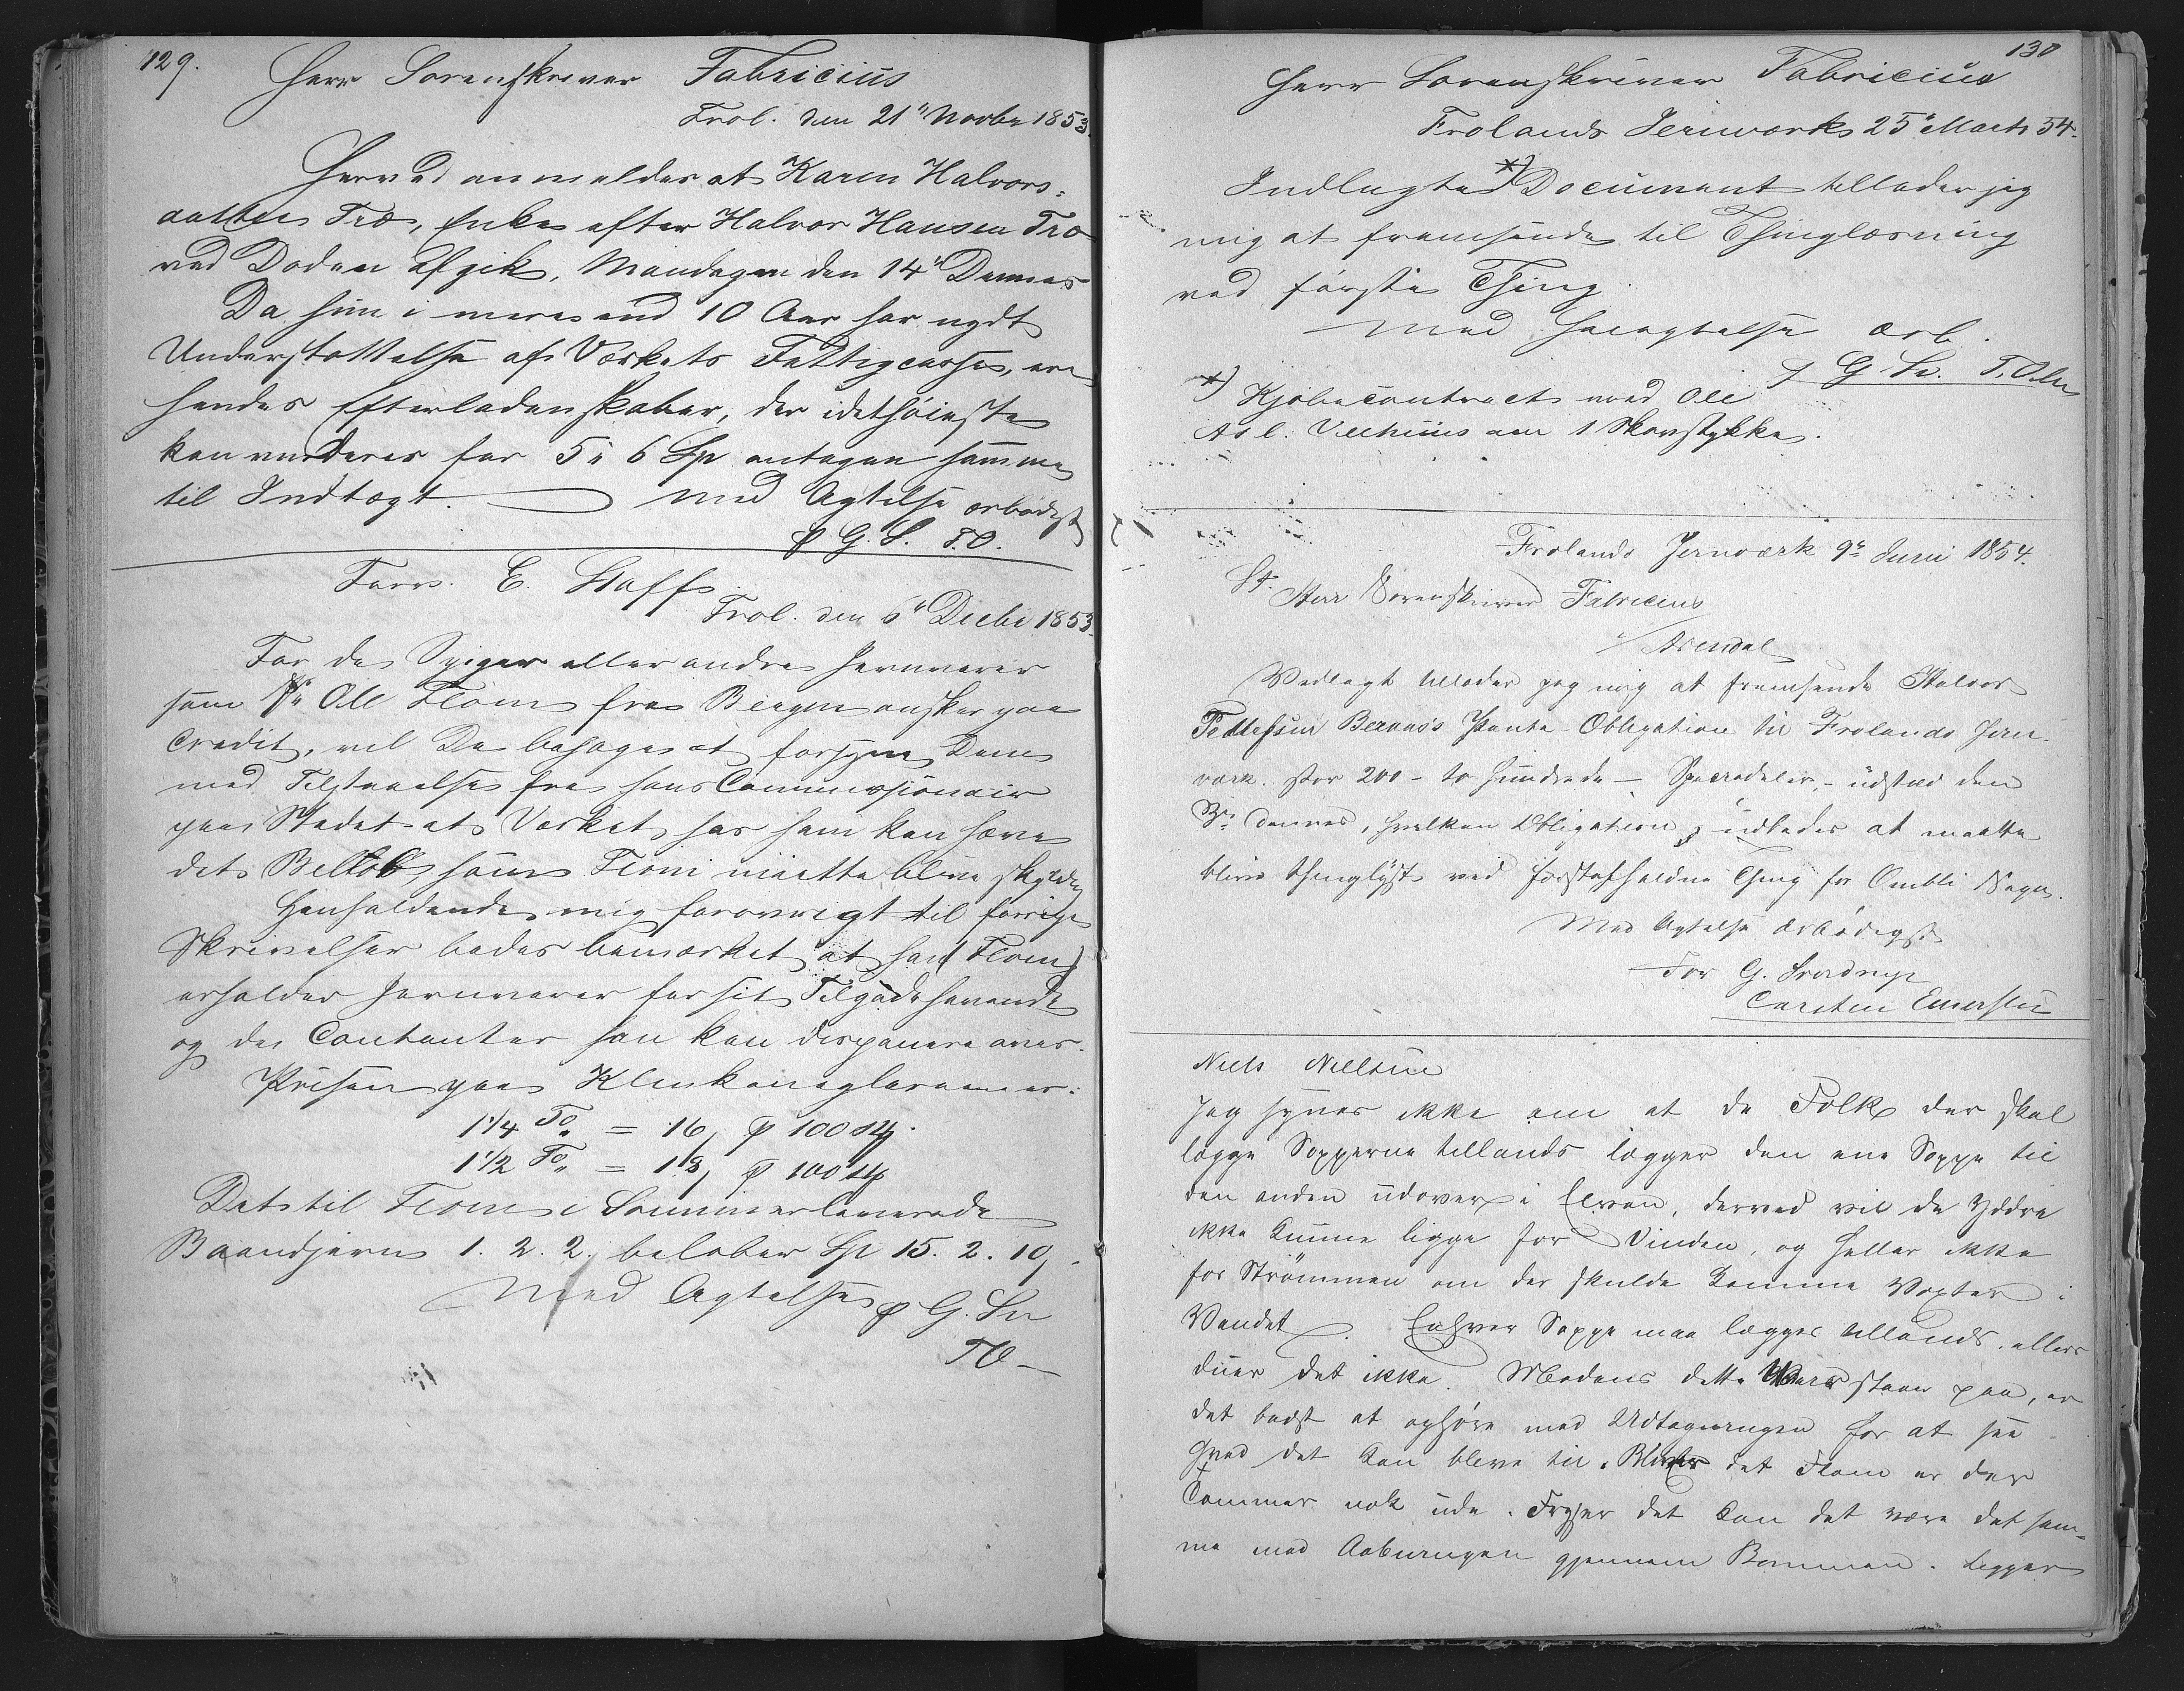 129.
Herr Sorenskriver Fabricius
Frol. den 21" Novbr 1853.
Herved anmeldes at Karen Halvors-
datter Træ, Enke efter Halvor Hansen Træ
ved Døden afgik, Mandagen den 14" Dennes
Da hun i mere end 10 Aar har nydt
Understøttelse af Værkets Fattigcasse, er
hendes Efterladenskaber, der idethøieste
kan vurderes for 5 a 6 Sp antagen samme
til Indtægt. Med Agtelse ærbødigst
p G. S. T.O.
E. Staff
Frol. den 6" Decbr 1853.
For de Spiger eller andre Jernvarer
som Ole Flom fra Bergen ønsker paa
Credit, vil De behage at forsyne Dem
med Tilstaaelse fra hans Commissionair
paa Stedet at Værket hos ham kan hæve
det Beløb, som Flom maatte blive skyldig
Henholdende mig forøvrigt til forrige
Skrivelser bedes bemærket at han (Flom)
erholder Jernvarer for sit Tilgodehavende
og de Contanter han kan disponere over.
Prisen paa Klinkenaglerne er:
1 1/4 To. = 16, p 100 st.
1 1/2 To. = 18, p 100 st
Det til Flom i Sommer leverede
Baandjern 1. 2. 2. beløber Sp 15. 2. 10,
Med Agtelse p G. Sv
TO
130
Herr Sorenskriver Fabricius
Frolands Jernværk 25" Marts 54.
Indlagte *) Document tillader jeg
mig at fremsende til Thinglæsning
ved første Thing.
Med Høiagtelse ærb.
p G Sv. T. Olsen
*) Kjøbecontract med Ole
Asl. om 1 Skovstykke.
Frolands Jernværk 9de Juni 1854.
St. Herr Sorenskriver Fabricius
Arendal
Vedlagt tillader jeg mig at fremsende Halvor
Tellefsen Pante-Obligation til Frolands Jern-
værk. stor 200 - to hundrede - Speciedaler, - udstæd den
3de dennes, hvilken Obligation udbedes at maatte
blive thinglyst ved førstafholdne Thing for Omli Sogn.
Med Agtelse ærbødigst
For G. Sverdrup
Carsten
Niels Nielsen
Jeg synes ikke om at de Folk der skal
lægge Sopperne tillands lægger den ene Soppe til
den anden udover i Elven, derved vil de Yddre
ikke kunne ligge for Vinden, og heller ikke
for Strømmen om der skulde komme Vexter i
Vandet. Enhver Soppe maa lægges tillands, ellers
duer det ikke. Medens dette Veir staar paa, er
det bedst at ophøre med Udtagningen for at see
hvad det kan blive til. Bliver det Flom er der
Tømmer nok ude. Fryser det kan det være det sam-
me med Aabningen gjennem Bommen. Ligger